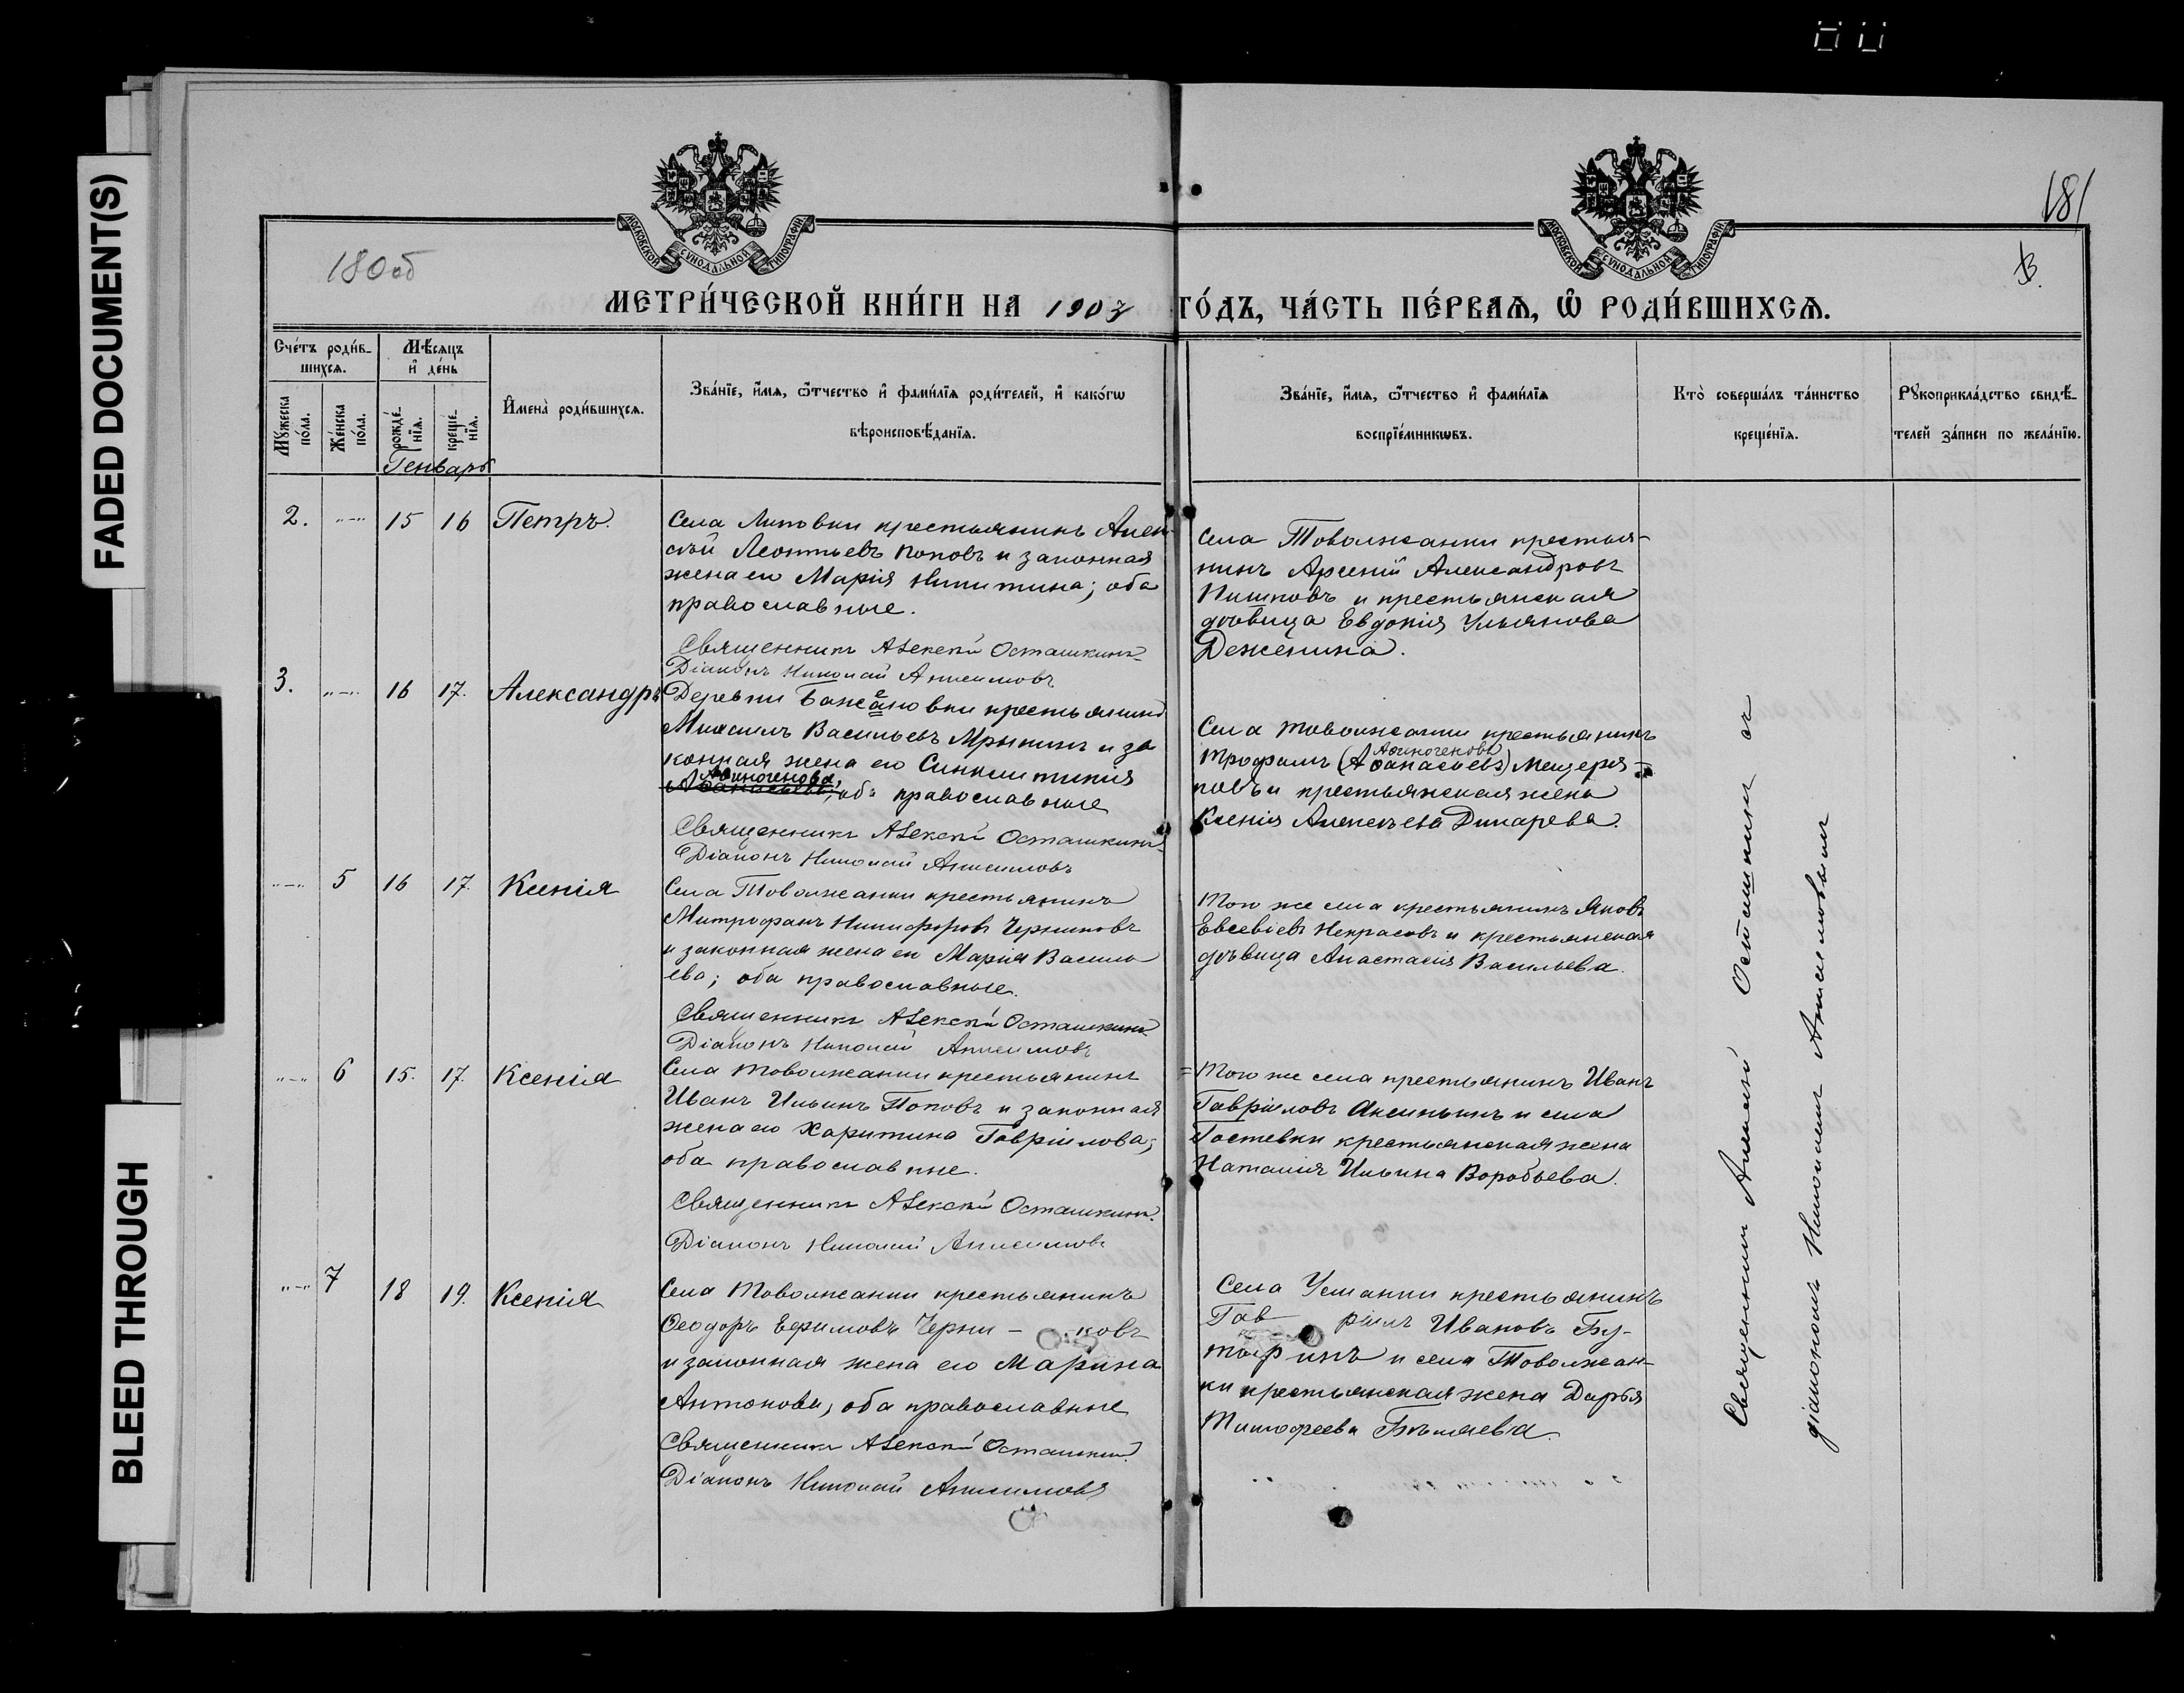 FADED DOCUMENT(S)
BLEED THROUGH
180 об
МОСКОВСКОЙ СѴНОДАЛЬНОЙ ТИПОГРАФІИ
МОСКОВСКОЙ СѴНОДАЛЬНОЙ ТИПОГРАФІИ
181
МЕТРИ́ЧЕСКОЙ КНИ́ГИ НА 1903 ГО́ДЪ, ЧА́СТЬ ПЕ́РВАѦ, Ѽ РОДИ́ВШИХСѦ.
Сче́тъ роди́в-
шихсѧ.
Мѣ́сѧцъ
и҆ де́нь
Мꙋ́жеска
по́ла.
Же́нска
по́ла.
рожде́-
нїѧ.
креще́-
нїѧ.
И҆мена̀ роди́вшихсѧ.
Зва́нїе, и҆́мѧ, ѻ҆́тчество и҆ фами́лїѧ роди́телей, и҆ како́гѡ
вѣроисповѣ́данїѧ.
Зва́нїе, и҆́мѧ, ѻ҆́тчество и҆ фами́лїѧ
воспрїе́мникѡвъ.
Кто̀ соверша́лъ та́инство
креще́нїѧ.
Рꙋкоприкла́дство свидѣ́-
телей за́писи по жела́нїю.
Генварь
2. "-" 15 16 Петръ.
Села Липовки крестьянинъ Алек-
сѣй Леонтьевъ Поповъ и законная
жена его Марія Никитина; оба
православные.
Священникъ Алексѣй Осташкинъ
Діаконъ Николай Анисимовъ
Села Товолжанки крестья-
нинъ Арсеній Александровъ
Кишковъ и крестьянская
дѣвица Евдокія Ульянова
Деженина.
3. "-" 16 17. Александръ
Деревни Бажановки крестьянинъ
е
Михаилъ Васильевъ Мрыкинъ и за
конная жена его Синклитикія
Аѳиногенова,
Аѳанасьева; оба православные
Священникъ Алексѣй Осташкинъ
Діаконъ Николай Анисимовъ
Села Товолжанки крестьянинъ
Аѳиногеновъ
Трофимъ (Аѳанасьевъ) Мещеря-
ковъ и крестьянская жена
Ксенія Алексѣева Дикарева.
"-" 5 16 17. Ксенія
Села Товолжанки крестьянинъ
Митрофанъ Никифоровъ Черниковъ
и законная жена его Марія Василь
ева; оба православные.
Священникъ Алексѣй Осташкинъ
Діаконъ Николай Анисимовъ
Того же села крестьянинъ Яковъ
Евсевіевъ Некрасовъ и крестьянская
дѣвица Анастасія Васильева.
"-" 6 15. 17. Ксенія
Села Товолжанки крестьянинъ
Иванъ Ильинъ Поповъ и законная
жена его Харитина Гавріилова;
оба православные.
Священникъ Алексѣй Осташкинъ.
Діаконъ Николай Анисимовъ
Того же села крестьянинъ Иванъ
Гавріиловъ Аксиньинъ и села
Гостевки крестьянская жена
Наталія Ильина Воробьева.
"-" 7 18 19. Ксенія
Села Товолжанки крестьянинъ
Ѳеодоръ Ефимовъ Черни- ковъ
и законная жена его Марина
Антонова, оба православные
Священникъ Алексѣй Осташкинъ.
Діаконъ Николай Анисимовъ
Села Усманки крестьянинъ
Гав ріилъ Ивановъ Бу-
таринъ и села Товолжан-
ки крестьянская жена Дарья
Тимофеева Бѣляева.
Священникъ Алексѣй Осташкинъ съ
діакономъ Николаемъ Анисимовымъ